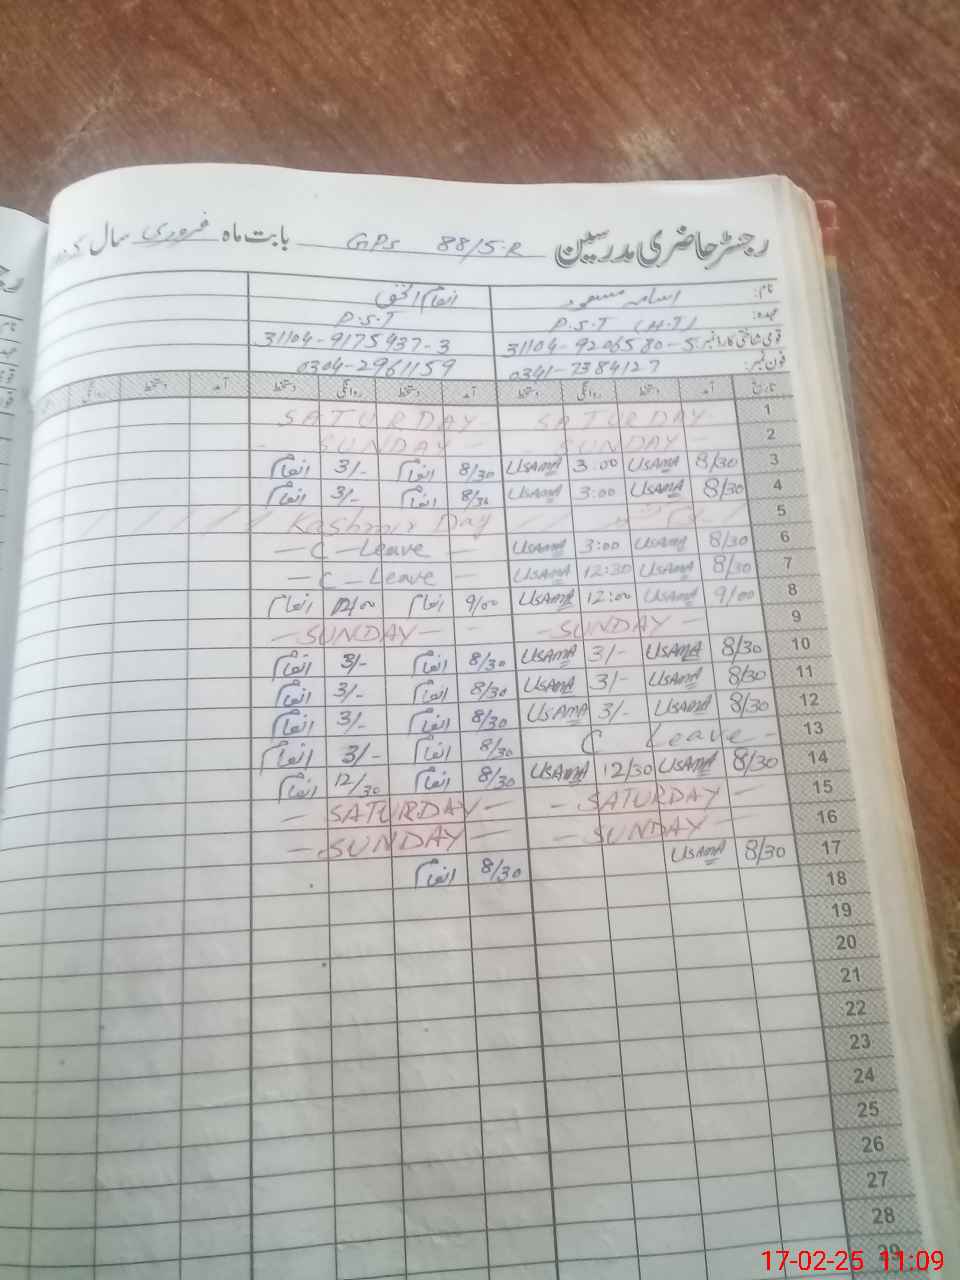 رجسٹر حاضری مدرسین GPS 88/5-R بابت ماہ فروری سال
نام: اسامہ مسعود انعام الحق
عہدہ: P.S.T (H.T) P.S.T
قومی شناختی کارڈ نمبر: 31104-9206580-5 31104-9175937-3
فون نمبر: 0341-7384127 0304-2961159
تاریخ آمد دستخط روانگی دستخط آمد دستخط روانگی دستخط آمد دستخط روانگی
1 SATURDAY SATURDAY
2 SUNDAY - - SUNDAY -
3 8/30 USAMA 3:00 USAMA 8/30 انعام 3/- انعام
4 8/30 USAMA 3:00 USAMA 8/30 انعام 3/- انعام
5 Kashmir Day
6 8/30 USAMA 3:00 USAMA - C - Leave -
7 8/30 USAMA 12:30 USAMA - C - Leave -
8 9/00 USAMA 12:00 USAMA 9/00 انعام 12/00 انعام
9 - SUNDAY - - SUNDAY - -
10 8/30 USAMA 3/- USAMA 8/30 انعام 3/- انعام
11 8/30 USAMA 3/- USAMA 8/30 انعام 3/- انعام
12 8/30 USAMA 3/- USAMA 8/30 انعام 3/- انعام
13 C Leave - 8/30 انعام 3/- انعام
14 8/30 USAMA 12/30 USAMA 8/30 انعام 12/30 انعام
15 - SATURDAY - - SATURDAY -
16 - SUNDAY - - SUNDAY -
17 8/30 USAMA 8/30 انعام
18
19
20
21
22
23
24
25
26
27
28
29
17-02-25 11:09